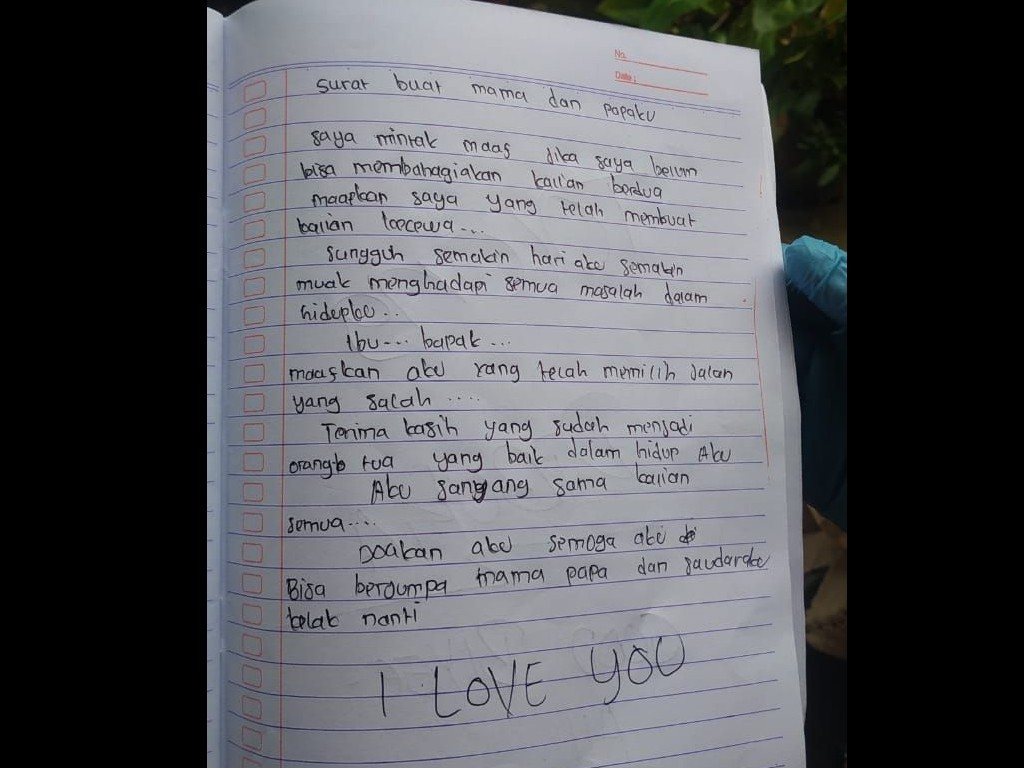 No.
Date:
surat buat mama dan papaku
saya mintak maas jika saya belum
bisa membahagiakan kalian berdua
maapkan saya yang telah membuat
kalian kecewa...
sungguh semakin hari aku semakin
muak menghadapi semua masalah dalam
hidupku..
Ibu... bapak...
maaskan aku yang telah memilih jalan
yang salah ....
Terima kasih yang sudah menjadi
orang-b tua yang baik dalam hidup Aku
Aku sanyang sama kalian
semua....
Doakan aku semoga aku
Bisa berjumpa mama papa dan saudaraku
kelak nanti
I LOVE YOU